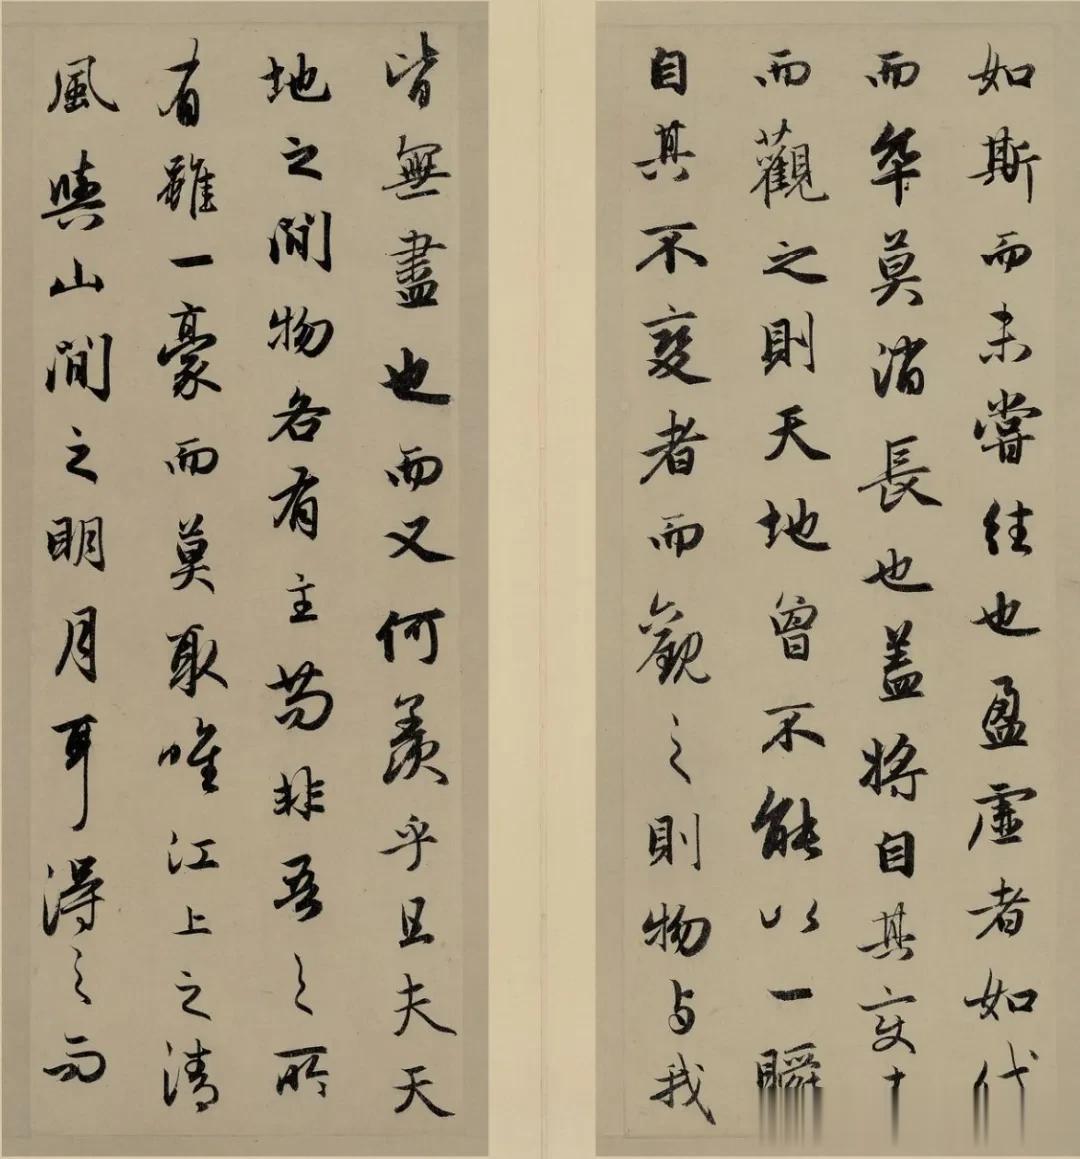 如斯而未嘗往也盈虛者如代
而卒莫消長也蓋將自其變
而觀之則天地曾不能以一瞬
自其不變者而觀之則物与我
皆無盡也而又何羨乎且夫天
地之間物各有主苟非吾之所
有雖一豪而莫取唯江上之清
風與山間之明月耳得之而